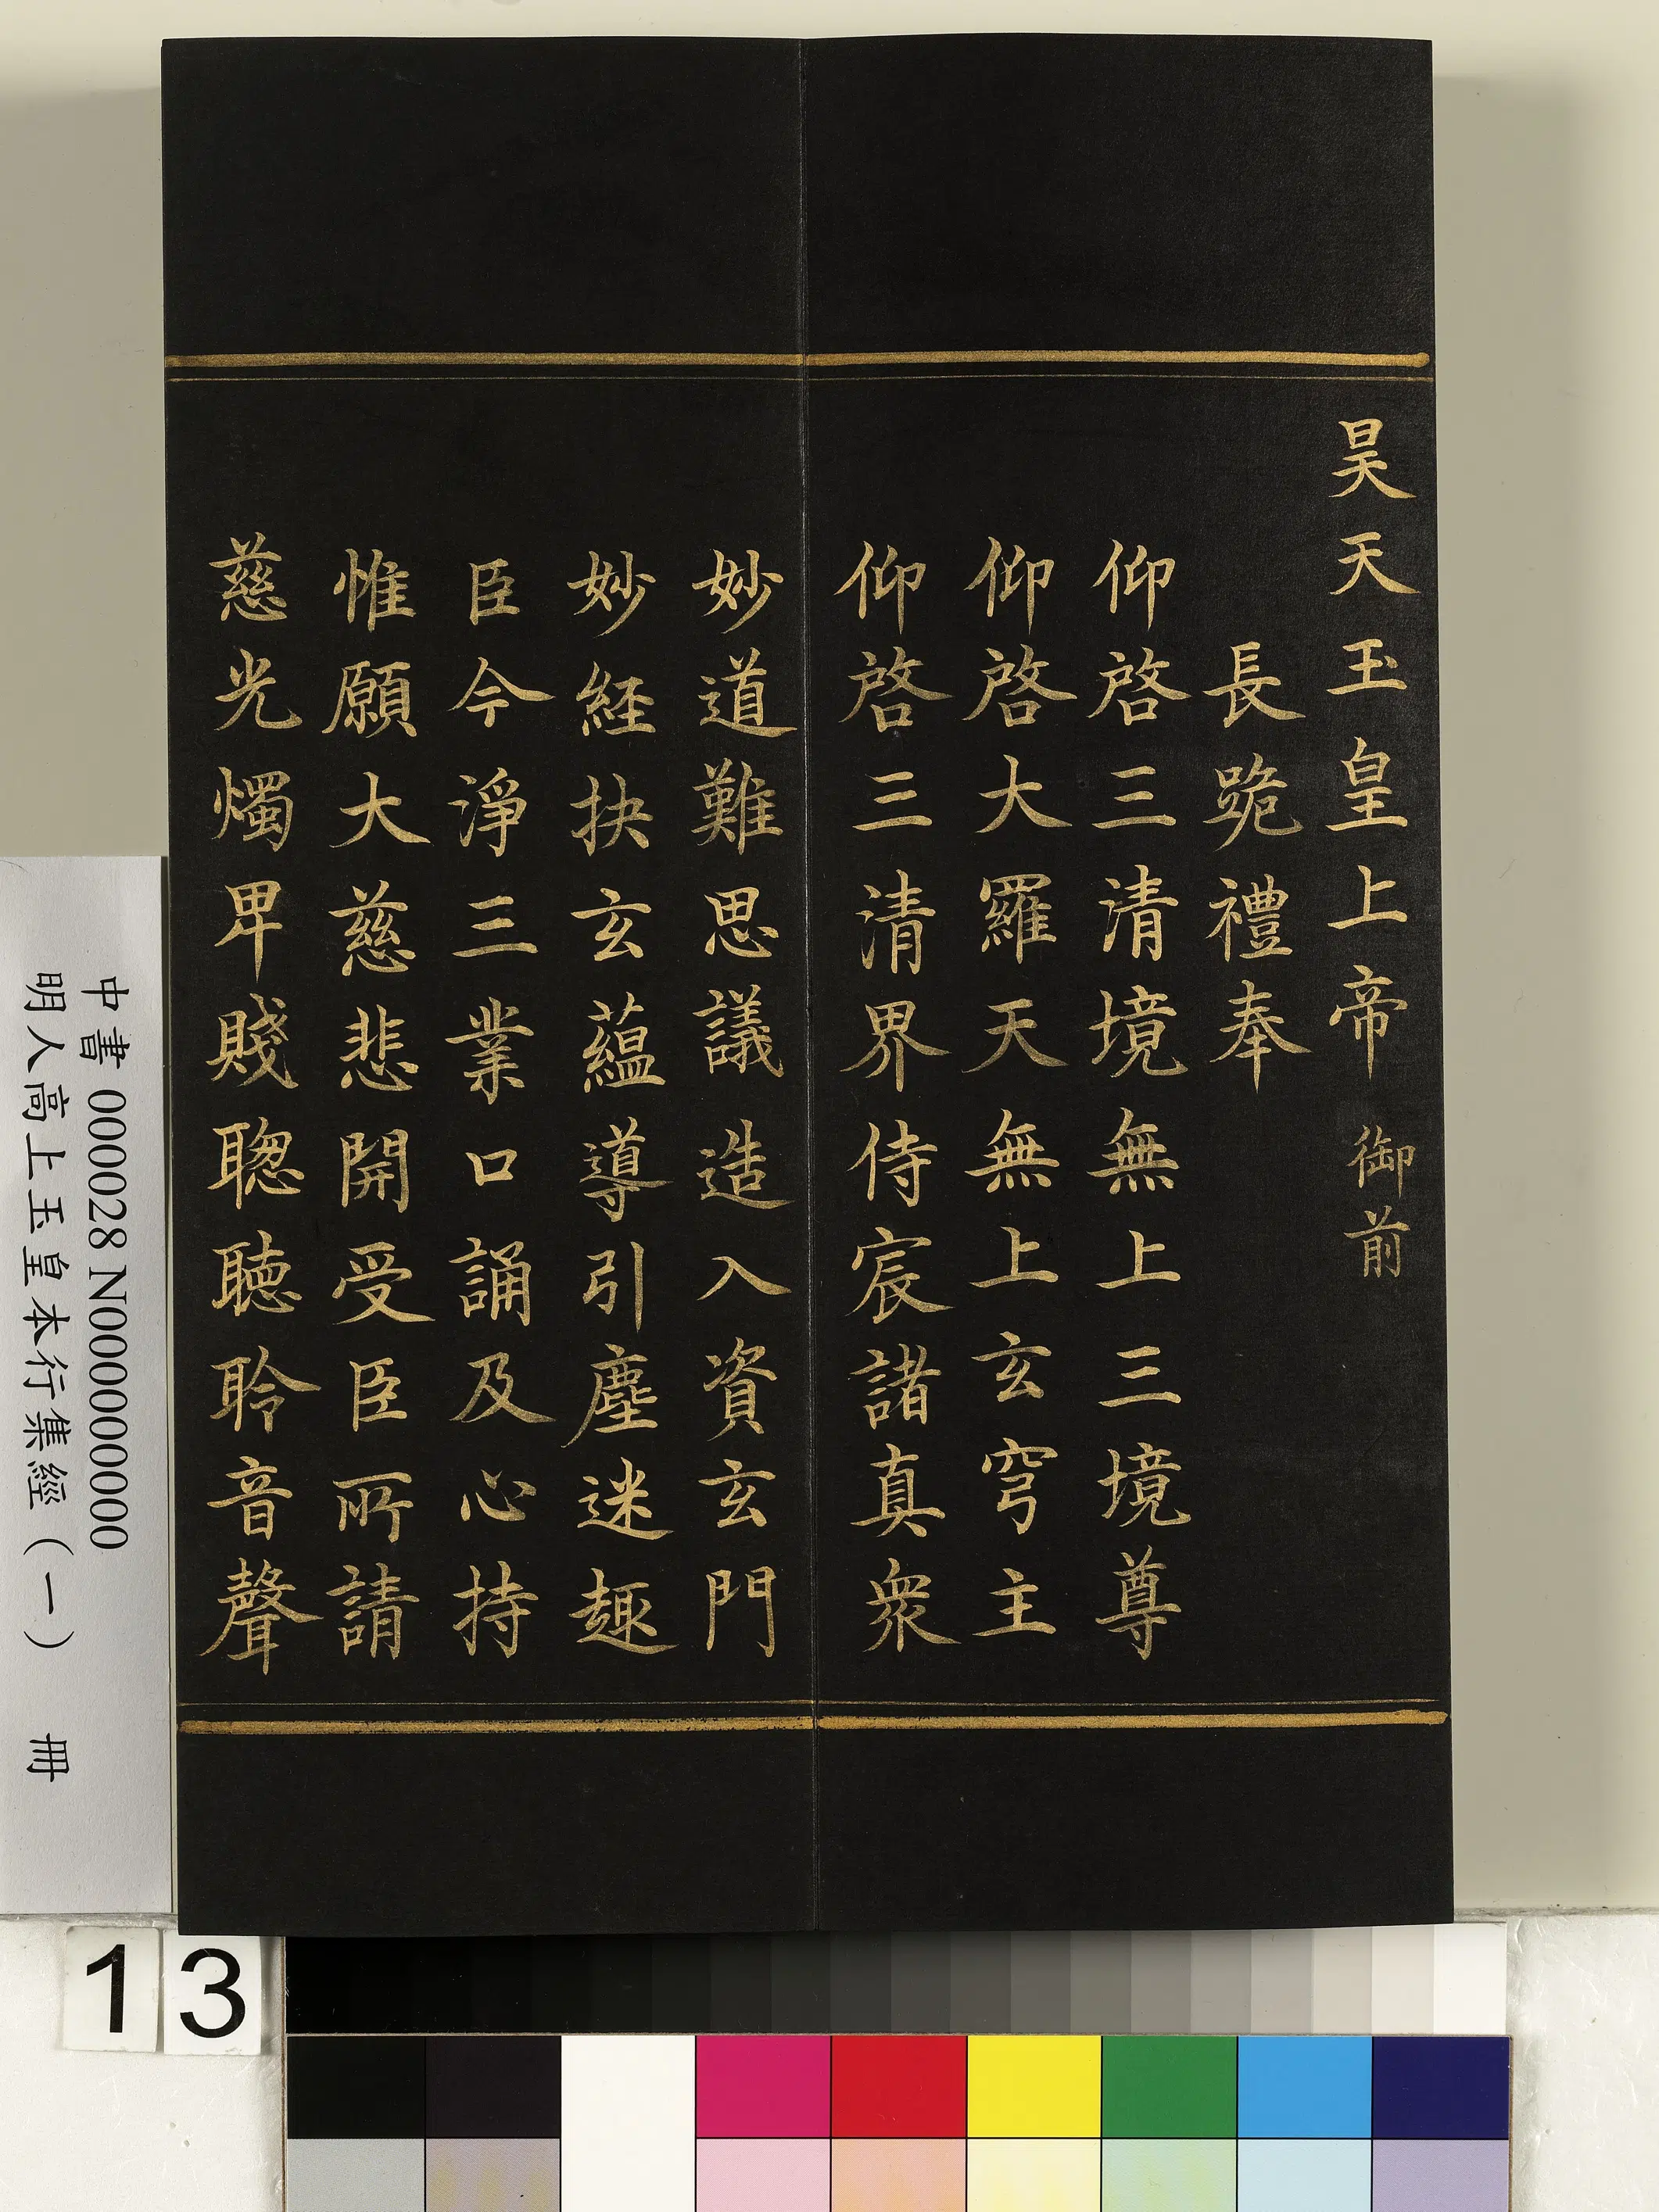 昊天玉皇上帝 御前
長跪禮奉
仰啓三清境無上三境尊
仰啓大羅天無上玄穹主
仰啓三清界侍宸諸真衆
妙道難思議造入資玄門
妙経抉玄蘊導引塵迷趣
臣今淨三業口誦及心持
惟願大慈悲開受臣所請
慈光燭卑賤聰聽聆音聲
中書 000028 N000000000
明人高上玉皇本行集經(一) 冊
13